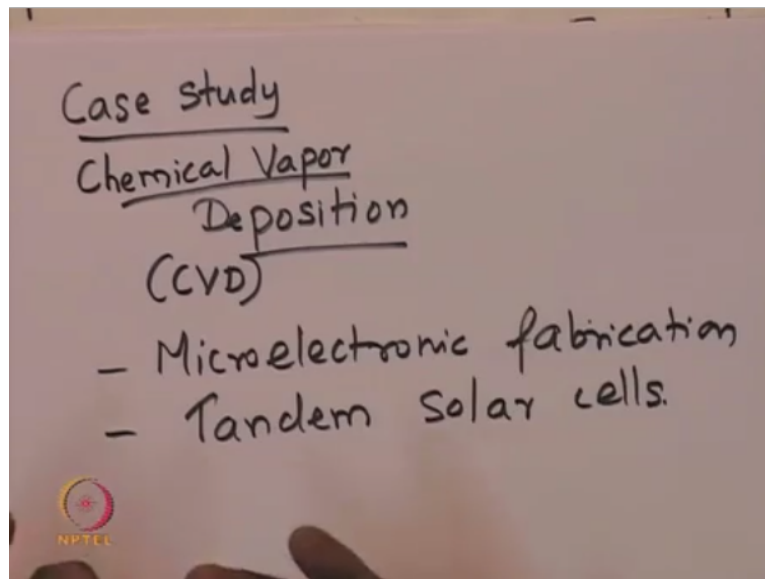 Case study
Chemical Vapor
Deposition
(CVD)
- Microelectronic fabrication
- Tandem solar cells.
NPTEL